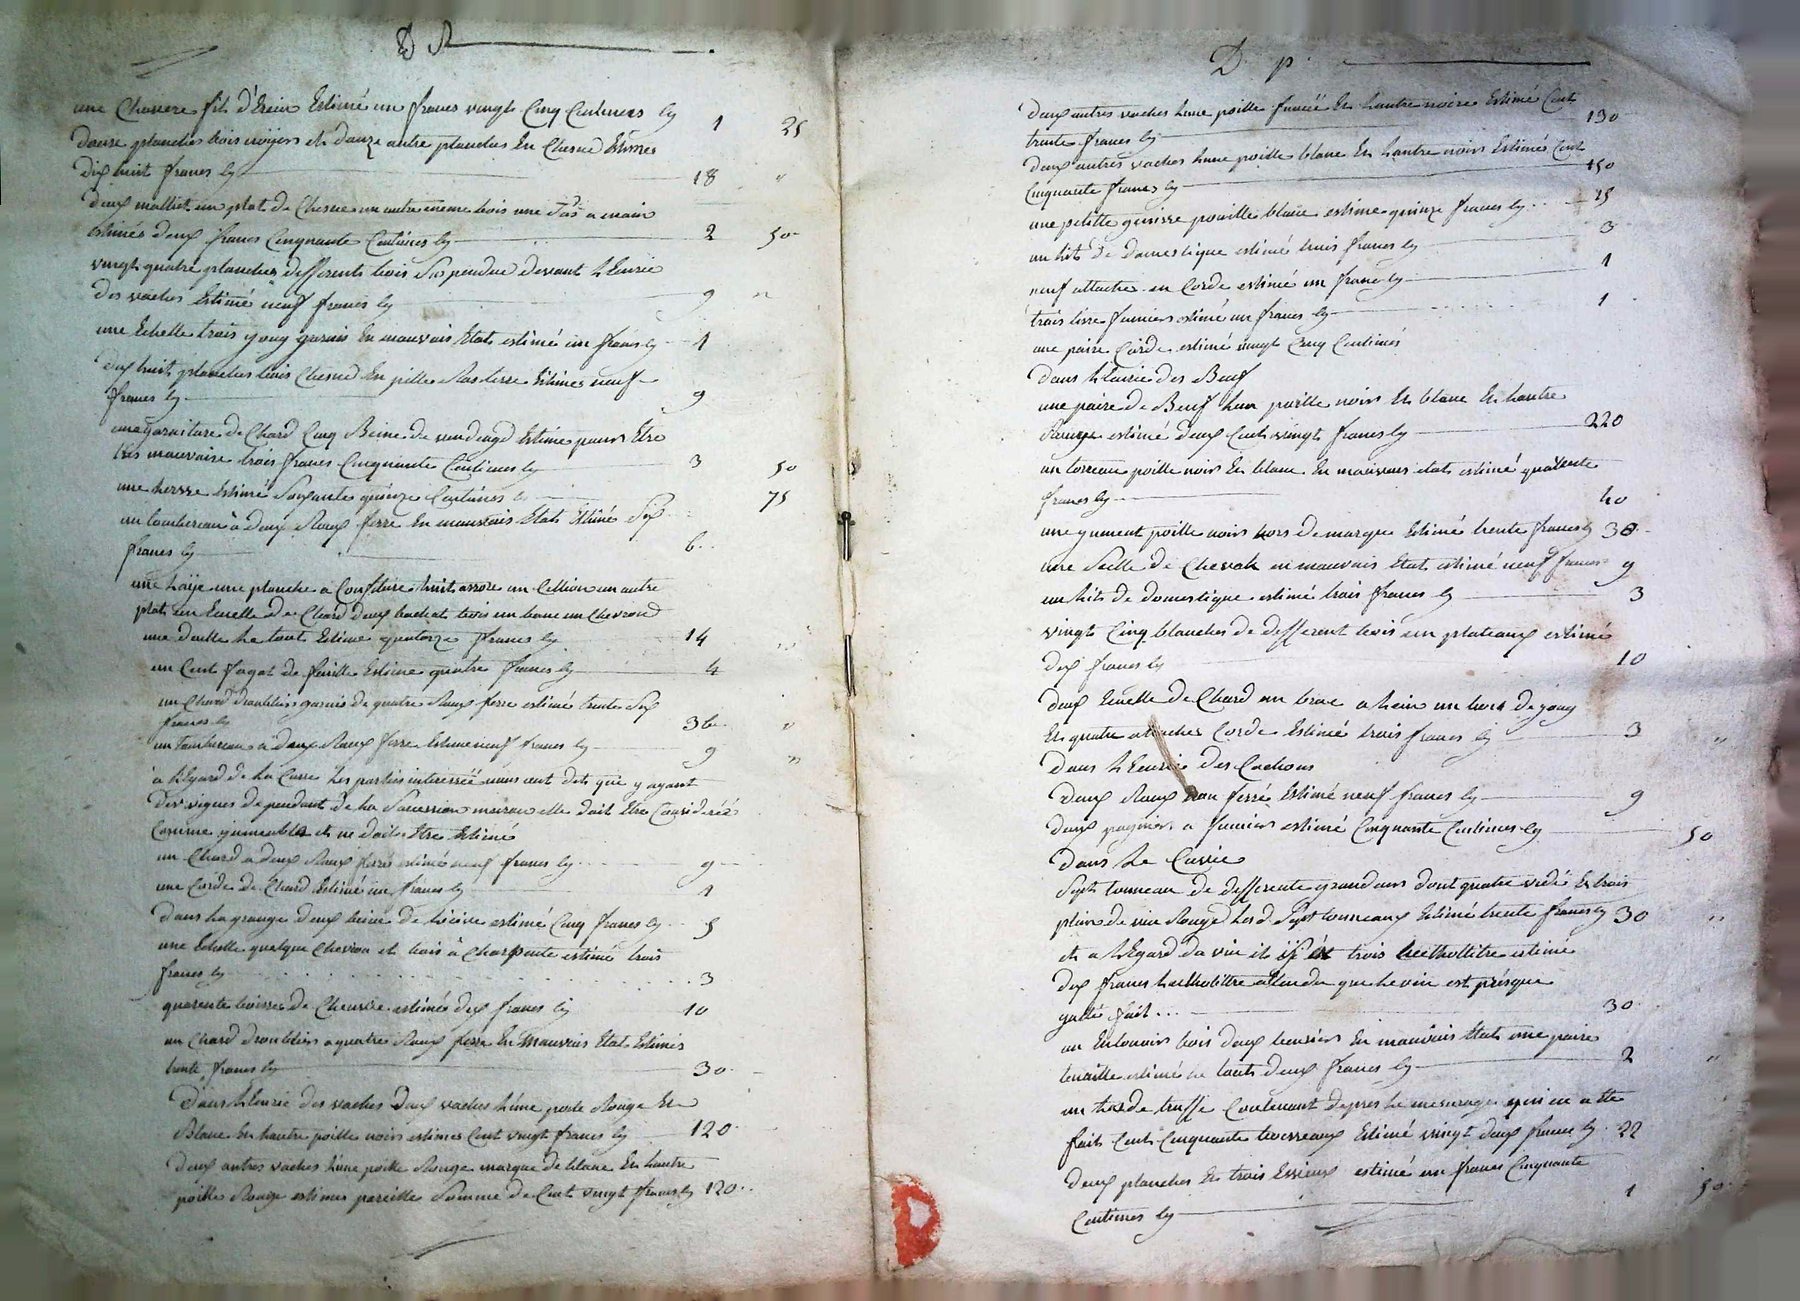 une Chausere fil d'Erein Estimé un francs vingt Cinq Centimes Cy 1 25
douze planches bois noijers et douze autre planches En Chesne Estimés
Dix huit francs Cy 18 "
deux un plat de Chesne un autre meme bois une a main
Estimés deux francs Cinquante Centimes Cy 2 50
vingt quatre planches differents bois Suspendue devant L'Eurie
des vaches Estimé neuf francs Cy 9 "
une Echelle trois youg garnis En mauvais Etat estimé un francs Cy 1
dix huit planches bois Chesne En pille Sus terre Estimés neuf
francs Cy 9
une garniture de Chard Cinq Beine de vendage Estimé pour Etre
très mauvaise trois francs Cinquante Centimes Cy 3 50
une hersse Estimé Soixante quinze Centimes Cy 75
un tombereau à deux Roux ferre En mauvais Etats Estimé Six
francs Cy 6
une une planche a huit un un autre
plat un Euvelle de Chard deux et trois un banc un Chevrond
une doulle Le tout Estimé quatorze francs Cy 14 "
un Cent fagot de feuille Estimé quatre francs Cy 4
un Chard garnis de quatre Roux ferre estimé trente Six
francs Cy 36 "
un tombereau a deux Roux ferre Estimé neuf francs Cy 9 "
à L'Egard de La Cuve Les parties interressée nous ont dits que y ayant
des vignes dependant de La Sucession elle doit Etre Considéréé
Comme ymeubles et ne doit Etre Estimé
un Chard a deux Roux ferré estimé neuf francs Cy 9
une Corde de Chard Estimé un francs Cy 1
Dans La grange deux beine de estimé Cinq francs Cy 5
une Echelle quelque Chevron et bois à Charpente estimé trois
francs Cy 3
quarente de Chenvie estimés dix francs Cy 10
un Chard a quatre Roux ferre En Mauvais Etat Estimés
trente francs Cy 30
Dans L'Eurie des vaches Deux vaches L'une poile Rouge Et
Blanc En Lautre poille noir estimés Cent vingt francs Cy 120
Deux autres vaches L'une poille Rouge marque de blanc En Lautre
poille Rouge estimés pareille Somme de Cent vingt francs Cy 120
D. p.
Deux autres vaches Lune poille En Lautre noire Estimé Cent
trente francs Cy 130
Deux autres vaches Lune poille blanc En Lautre noir Estimés Cent
Cinquante francs Cy 150
une petitte genisse pouille blanc estimé quinze francs Cy 15
un Lit de Domestique estimé trois francs Cy 3
neuf attache en Corde estimé un franc Cy 1
trois fumiers estimé un francs Cy 1
une paire Corde estimé vingt Cinq Centimes
Dans L'Eurie des Beuf
une paire de Beuf Lun poille noir En blanc En Lautre
Rouge estimé deux Cents vingt francs Cy 220
un torreau poille noir En blanc En mauvais etat estimé quarente
francs Cy 40
une yument poille noir hors de marque Estimé trente francs Cy 30
une Selle de Cheval en mauvais Etat estimé neuf francs 9
un Lit de domestique estimé trois francs Cy 3
vingt Cinq planches de different bois un plateaux estimé
dix francs Cy 10
deux Euvelle de Chard un broc a un de youg
En quatre attaches Corde Estimé trois francs Cy 3 "
Dans L'Eurie des Cochons
Deux Roux non ferré Estimé neuf francs Cy 9
Deux pagniers a fumiers estimé Cinquante Centimes Cy 50
Dans Le Cuvié
Sept tonneau de differente grandeur dont quatre vidé En trois
plein de vin Rouge Les d. Sept tonneaux Estimé trente francs Cy 30 "
et a L'Egard du vin trois hectholittre estimé
dix francs L'hectholittre attendu que Le vin est présque
gatté fait 30
un Entonoir bois deux En mauvais Etats une paire
tenaille estimé Le tout deux francs Cy 2 "
un tas de truffe Contenant d'apres Le mesurage qui en a Ete
fait Cent Cinquante Estimé vingt deux francs Cy 22
Deux planches En trois Essieux estimé un francs Cinquante
Centimes Cy 1 50